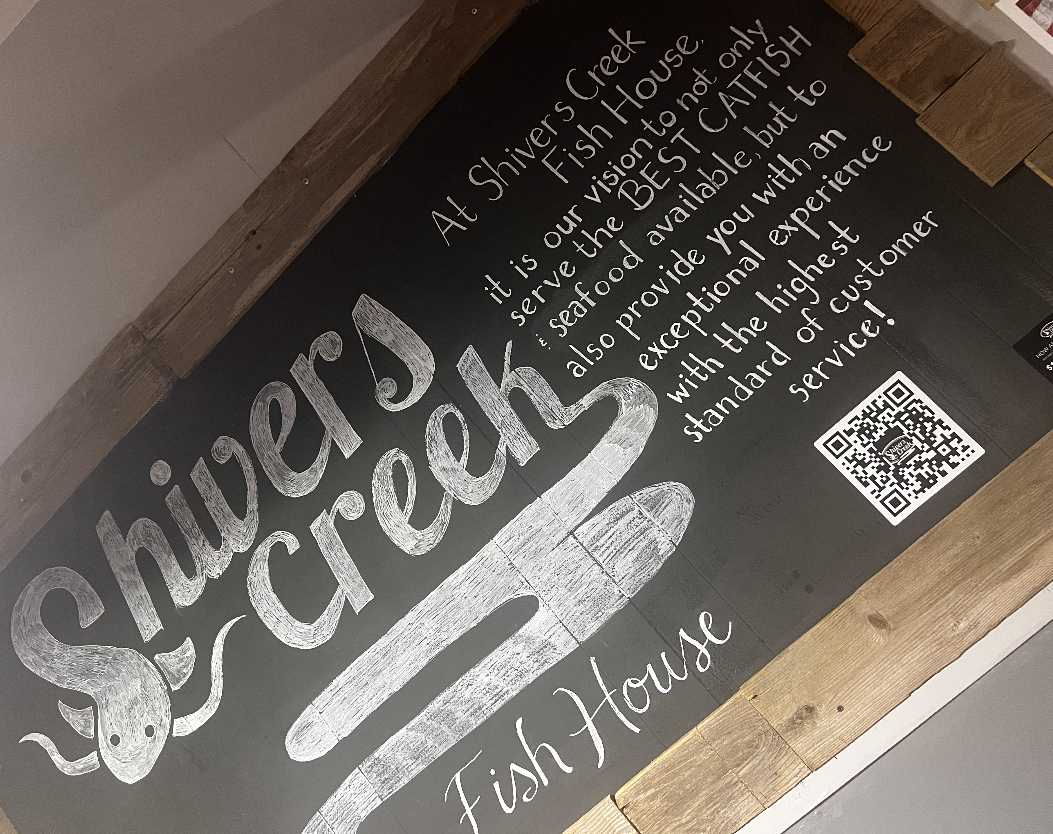 At Shivers Creek
Fish House,
it is our vision to not only
serve the BEST CATFISH
& seafood available, but to
also provide you with an
exceptional experience
with the highest
standard of customer
service!
Shivers
Creek
Fish House